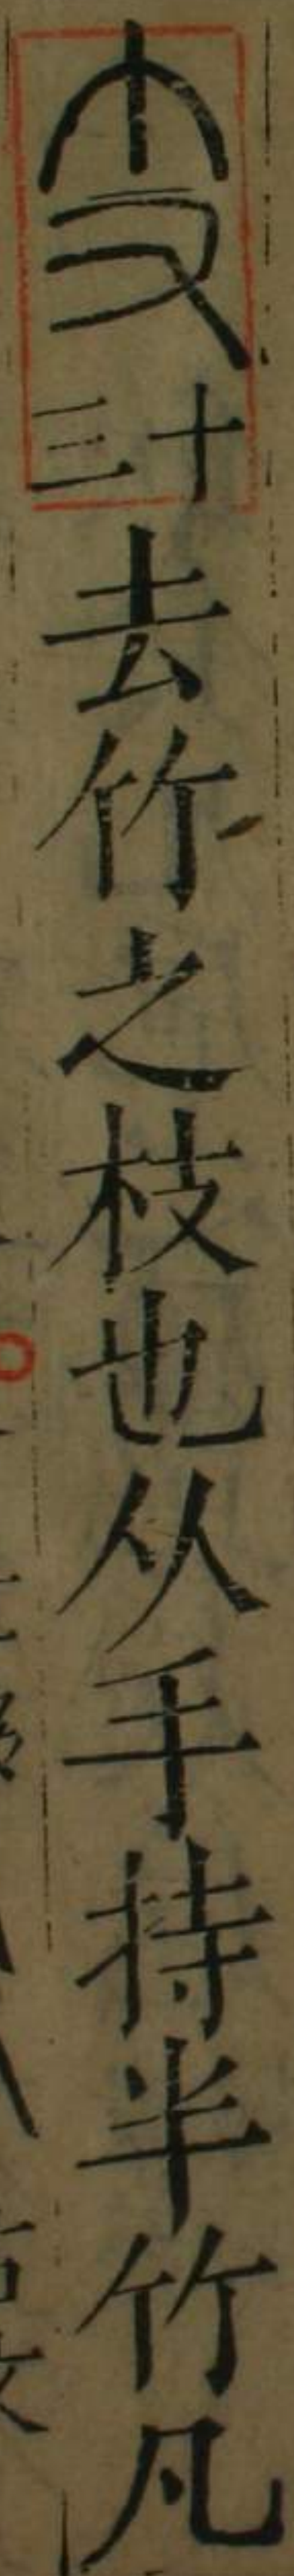 支 十三 去竹之枝也从手持半竹凡